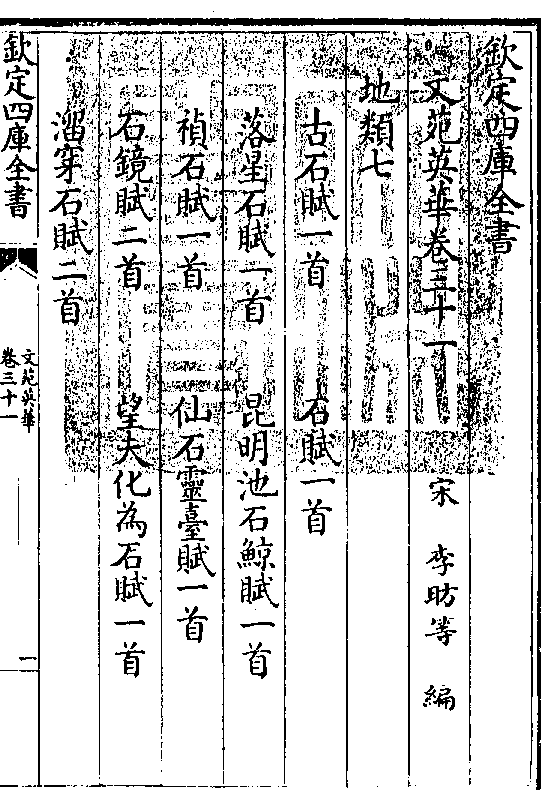 欽定四庫全書
文苑英華卷三十一 宋 李昉等 編
地類七
古石賦一首 石賦一首
落星石賦一首 昆明池石鯨賦一首
禎石賦一首 仙石靈臺賦一首
石鏡賦二首 望夫化為石賦一首
溜穿石賦二首
欽定四庫全書
文苑英華
卷三十一
一